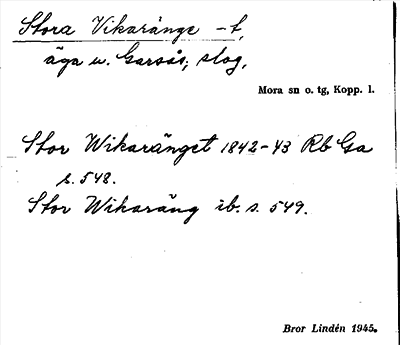 Stora Vikaränge -t,
äga u. Garsås; slog.
Mora sn o. tg, Kopp. l.
Stor Wikaränget 1842-43 Rb Ga
s. 548.
Stor Wikaräng ib. s. 549.
Bror Lindén 1945.